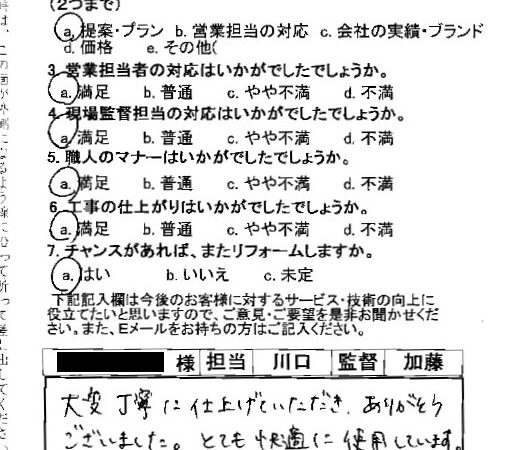 (2つまで)
a. 提案・プラン b. 営業担当の対応 c. 会社の実績・ブランド
d. 価格 e. その他(
3. 営業担当者の対応はいかがでしたでしょうか。
a. 満足 b. 普通 c. やや不満 d. 不満
4. 現場監督担当の対応はいかがでしたでしょうか。
a. 満足 b. 普通 c. やや不満 d. 不満
5. 職人のマナーはいかがでしたでしょうか。
a. 満足 b. 普通 c. やや不満 d. 不満
6. 工事の仕上がりはいかがでしたでしょうか。
a. 満足 b. 普通 c. やや不満 d. 不満
7. チャンスがあれば、またリフォームしますか。
a. はい b. いいえ c. 未定
下記記入欄は今後のお客様に対するサービス・技術の向上に
役立てたいと思いますので、ご意見・ご要望を是非お聞かせくだ
さい。また、Eメールをお持ちの方はご記入ください。
様 担当 川口 監督 加藤
大変丁寧に仕上げていただき、ありがとう
ございました。とても快適に使用しています。